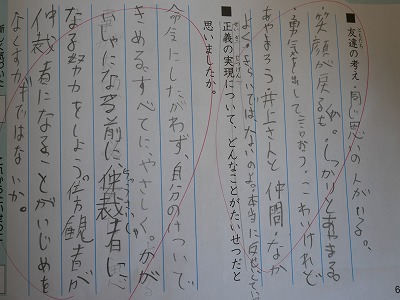 ■友達の考え・同じ思いの人がいる。
・笑顔が戻るもね。しっかりとあやまる。
勇気を出して言おう・こわいけれど
あやまろう井上さんと仲間・なか
正義の実現について、どんなことがたいせつだと
思いましたか。
命令にしたがわず、自分のけついで
きめる。すべてに、やさしく。かが
になる前に仲裁者に
なる努力をしよう。傍観者が
仲裁者になることがいじめを
なくすカギではないか。
6